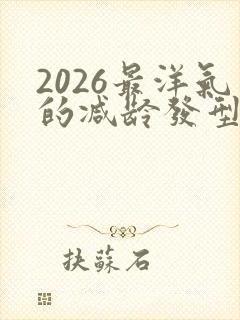 2026最洋氣
的減龄發型
抉蘇石